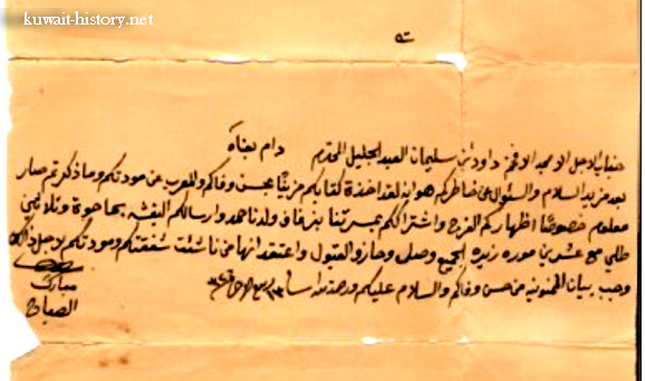 kuwait-history.net
جناب الاجل الامجد الافخم داود بن سليمان العبد الجليل المحترم دام بقاه
بعد مزيد السلام والسئوال عن خاطركم هو انه لقد اخذة كتابكم مزينًا بحسن وفاكم والمعرب عن مودتكم وما ذكرتم صار
معلوم خصوصًا اظهاركم الفرح واشتراككم بمسرتنا بزفاف ولدنا حمد وارسالكم البقشه بها جوخة
طلي مع عشرين الجميع وصلى وحازو القبول واعتقد انها من شفقتكم ومودتكم لاجل ذالك
وجب بيان الممنونيه من حسن وفاكم والسلام عليكم ورحمة الله
مبارك
الصباح